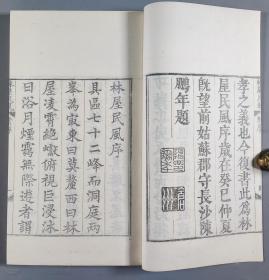 孝之義也今復書此爲林
屋民風序歲在癸巳仲夏
旣望前姑蘇郡守長沙陳
鵬年題
林屋民風序
具區七十二峰而洞庭兩
峯為㝡東曰莫釐西曰林
屋凌霄絕巘俯視巨浸沐
日浴月煙霧無際遊者謂